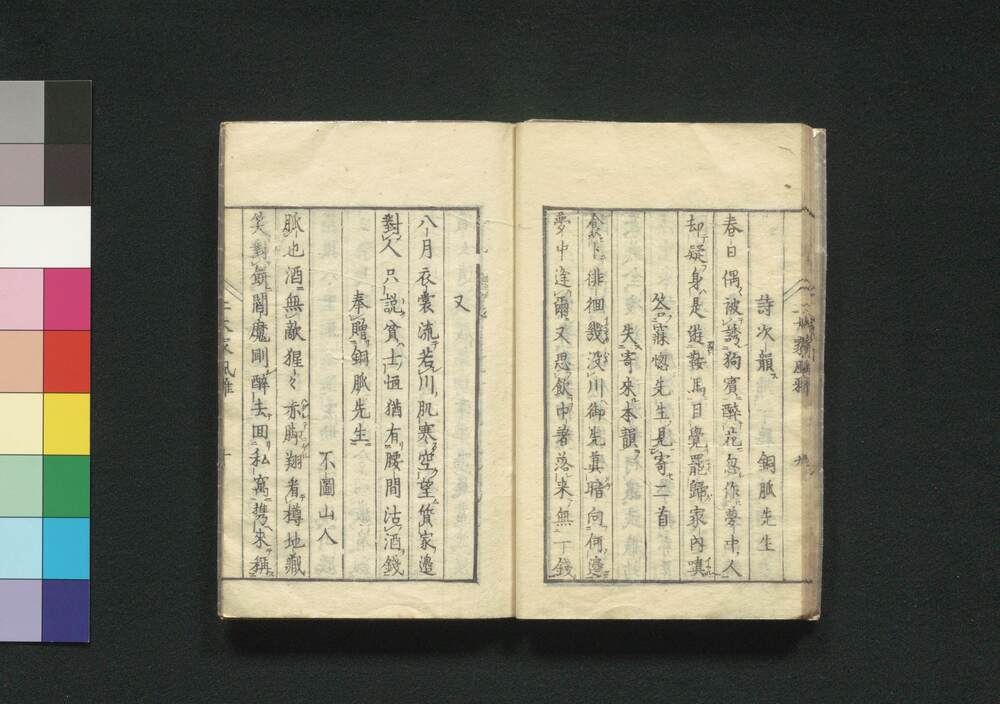 詩次韻 銅脈先生
春日偶被誘狗賓醉花忽作夢中人
却疑身是遊鞍馬目覺罷歸家内嗔
答寐惚先生見寄二首
失寄來本韻
徘徊幾没川御先真暗向何邊
夢中逢爾又思飲中著落来無一丁錢
又
八月衣裳流若川肌寒空望質家邊
對人只説貧士恒猶有腰間沽酒錢
奉贈銅脈先生
不圖山人
脈也酒無敵猩々赤 翔肴樽地藏
笑對 閻魔剛醉去田私窩携来稱
二大家風雅